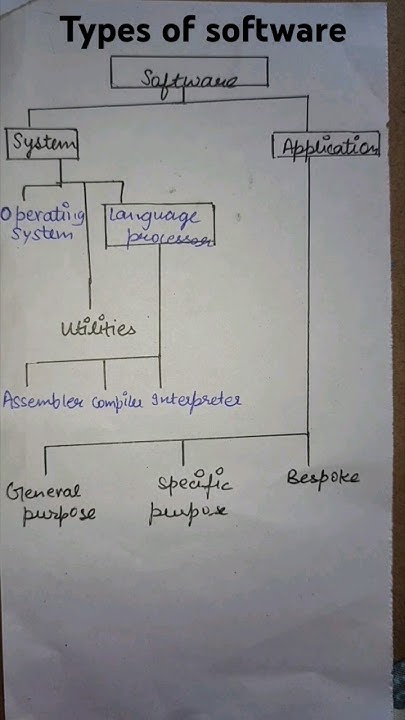 Types of software
Software
System
Application
Operating
System
Language
processor
Utilities
Assembler Compiler Interpreter
General
purpose
Specific
purpose
Bespoke